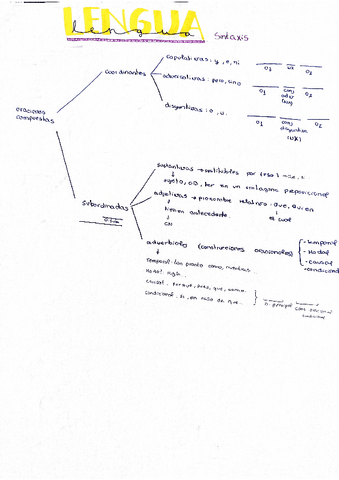 LENGUA
lengua
Sintaxis
copulativas: y, e, ni
O1 nx O2
coordinantes
adversativas: pero, sino
O1 conj O2
disyuntivas: o, u.
O1 conj O2
disyuntiva
(nx)
oraciones
compuestas
sustantivas → sustituibles por
sujeto, CD, ter en un sintagma preposicional
Subordinadas
adjetivas → pronombre relativo: que, quien
tienen antecedente
el cual
CN
adverbiales (construcciones oracionales)
- temporal
- Modal
- causal
- condicional
Temporal: tan pronto como, mientras...
Modal: según...
Causal: porque, que, como...
Condicional: si, en caso de que...
o. principal